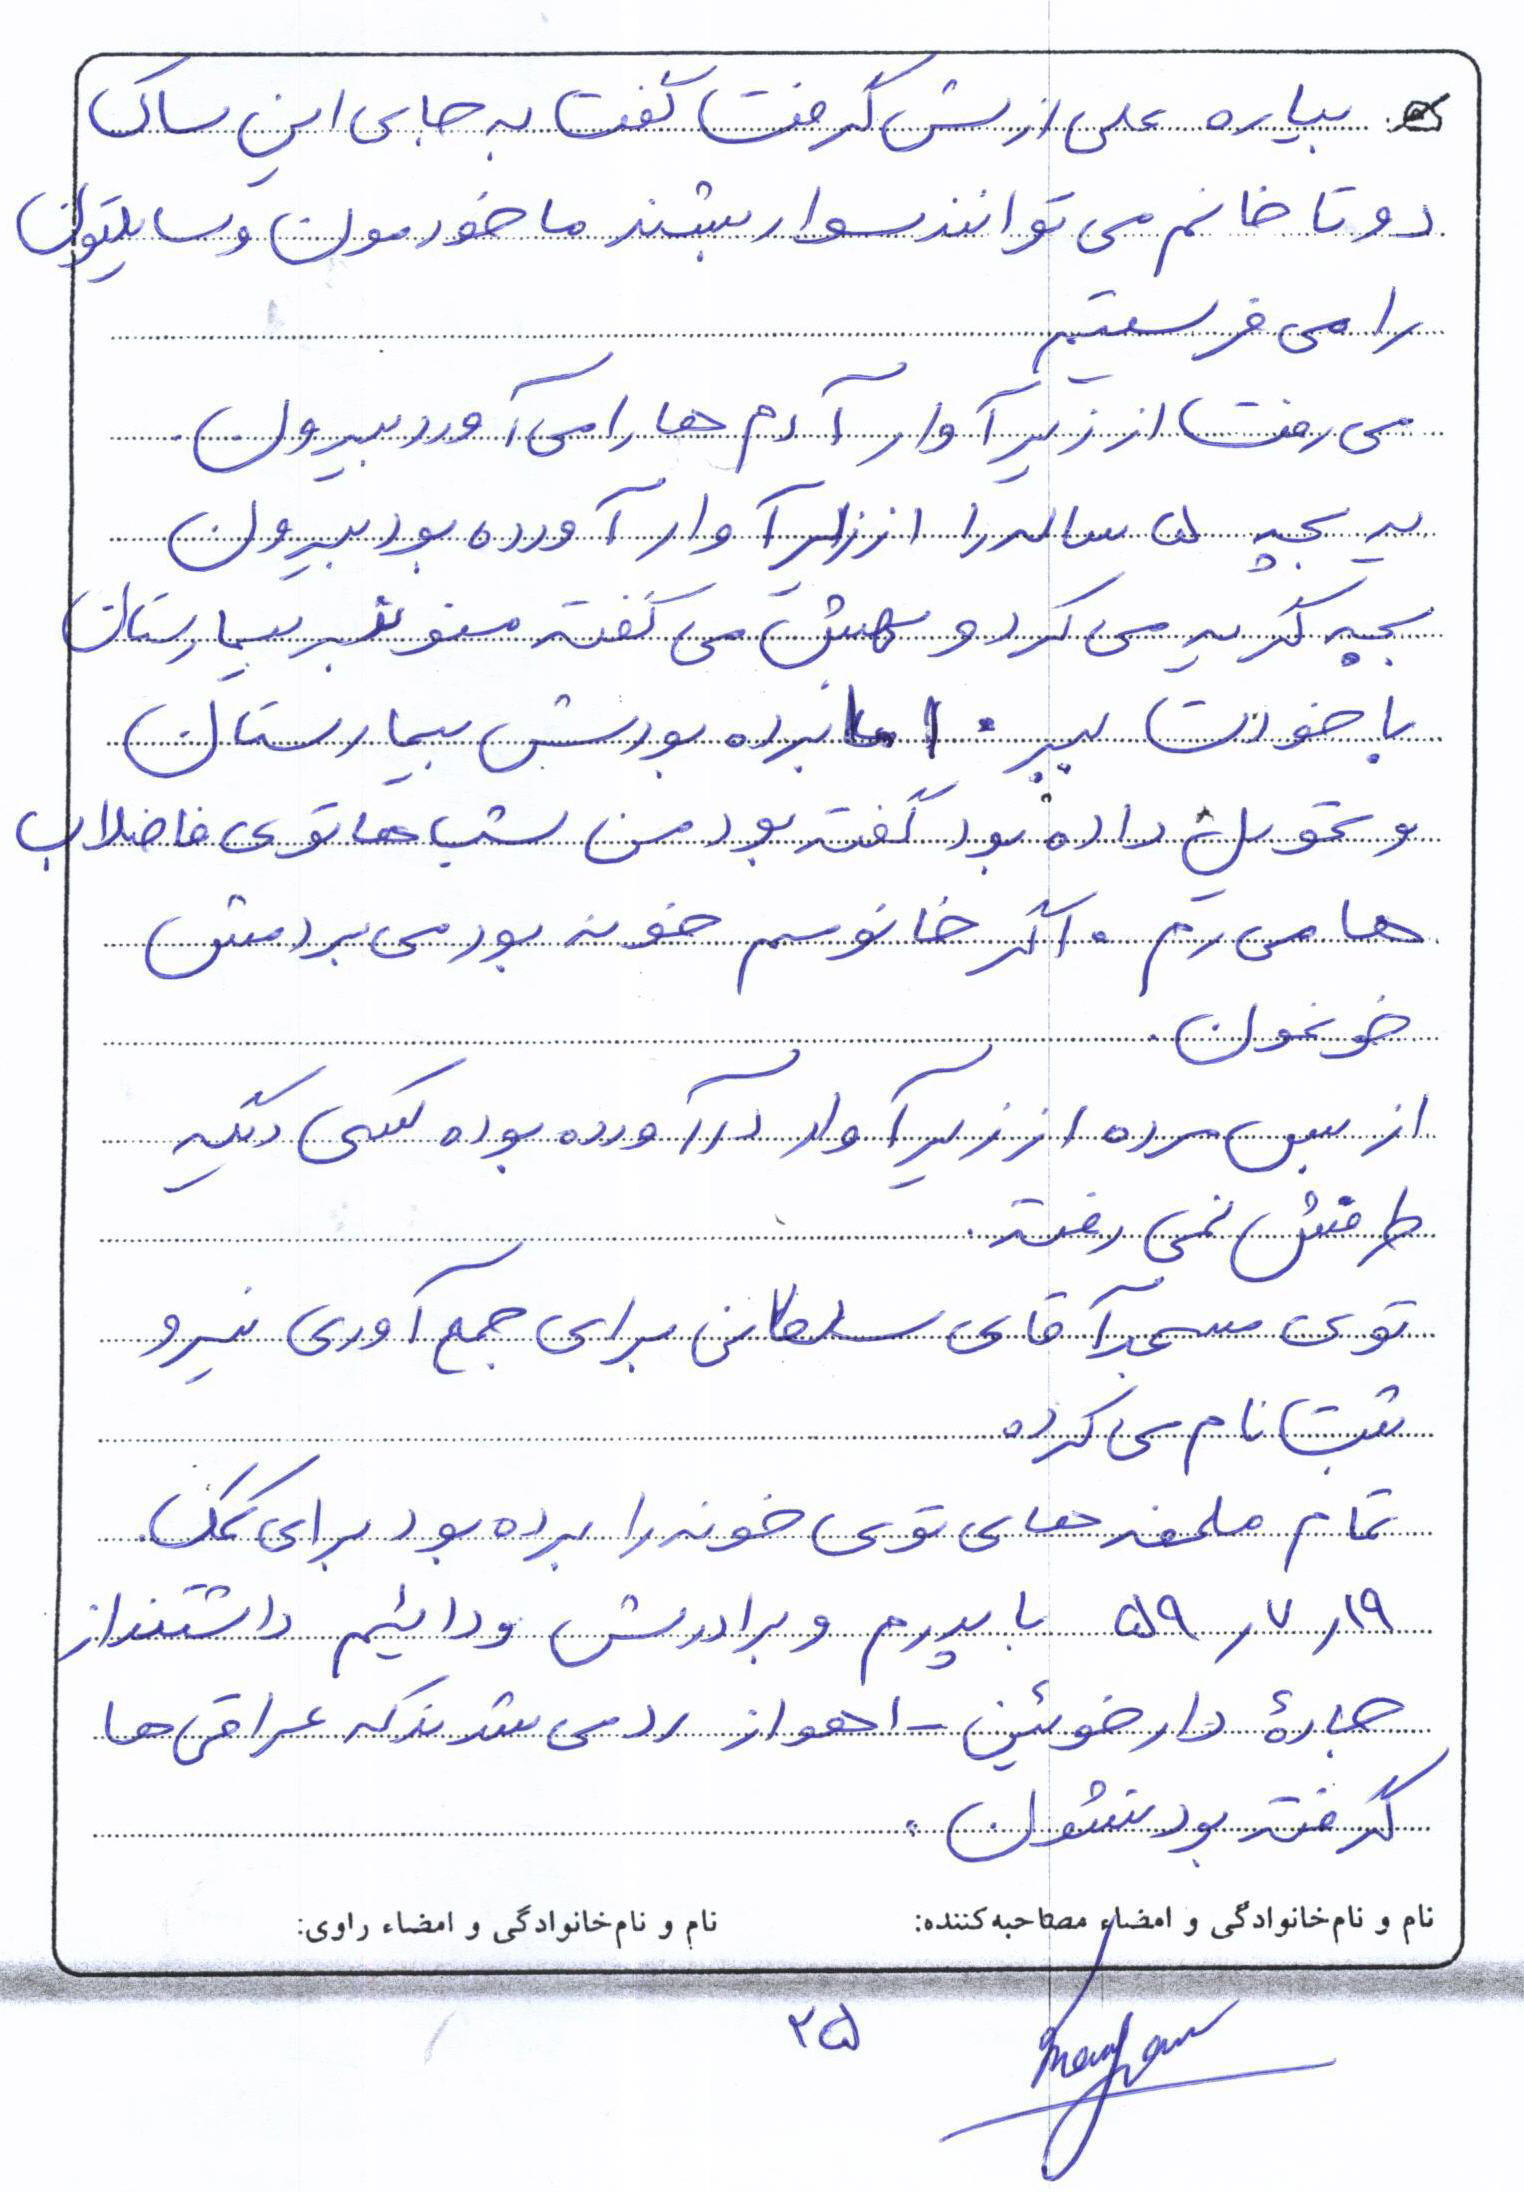 بیاره علی ازش گرفت گفت به جای این ساک
دو تا خانم می توانند سوار بشند ما خودمون وسایلتون
را می فرستیم
می رفت از زیر آوار آدم ها را می آورد بیرون.
یه بچه ۵ ساله را از زیر آوار آورده بود بیرون
بچه گریه می کرد و بهش می گفته منو نبر بیمارستان
با خودت ببر. اما برده بودش بیمارستان
و تحویل داده بود گفته بود من شب ها توی فاضلاب
ها می رم. اگر خانوسم خونه بود می بردمش
خونمون.
از بس مرده از زیر آوار در آورده بوده کسی دیگه
طرفش نمی رفته.
توی مسجد آقای سلطانی برای جمع آوری نیرو
ثبت نام می کرده
تمام ملحفه های توی خونه را برده بود برای کمک.
۱۹ر ۷ر ۵۹ با پدرم و برادرش و دائیم داشتند از
جادهٔ دارخوئین - اهواز رد می شدند که عراقی ها
گرفته بودنشون.
نام و نام خانوادگی و امضاء مصاحبه کننده: نام و نام خانوادگی و امضاء راوی:
۲۵